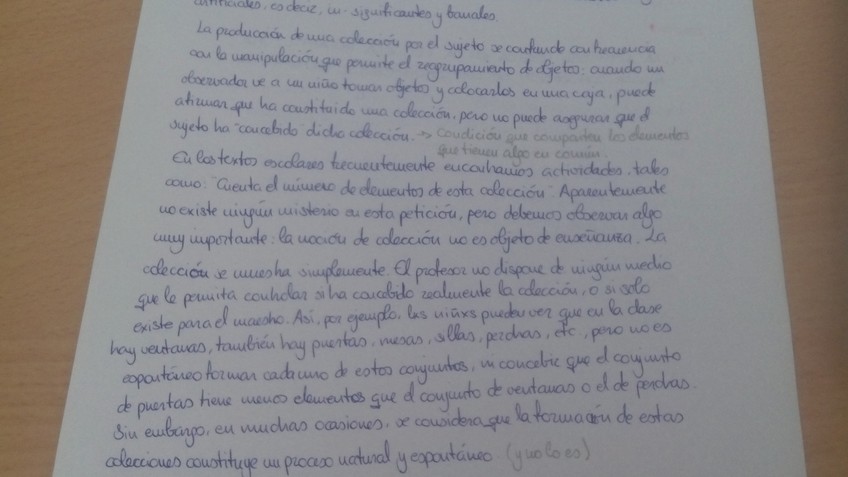 artificiales, es decir, in-significantes y banales.
La producción de una colección por el sujeto se confunde con frecuencia
con la manipulación que permite el reagrupamiento de objetos: cuando un
observador ve a un niño tomar objetos y colocarlos en una caja, puede
afirmar que ha constituido una colección, pero no puede asegurar que el
sujeto ha "concebido" dicha colección. → Condición que comparten los elementos
que tienen algo en común.
En los textos escolares frecuentemente encontramos actividades, tales
como: "Cuenta el número de elementos de esta colección". Aparentemente
no existe ningún misterio en esta petición, pero debemos observar algo
muy importante: la noción de colección no es objeto de enseñanza. La
colección se muestra simplemente. El profesor no dispone de ningún medio
que le permita controlar si ha concebido realmente la colección, o si solo
existe para el maestro. Así, por ejemplo, lxs niñxs pueden ver que en la clase
hay ventanas, también hay puertas, mesas, sillas, perchas, etc, pero no es
espontáneo formar cada uno de estos conjuntos, ni concebir que el conjunto
de puertas tiene menos elementos que el conjunto de ventanas o el de perchas.
Sin embargo, en muchas ocasiones, se considera que la formación de estas
colecciones constituye un proceso natural y espontáneo. (y no lo es)